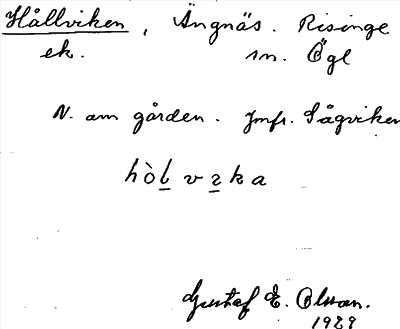 Hållviken, Ängnäs. Risinge
ek. sn. Ögl
N. om gården. Jmfr. Sågviken
hòl vzka
Gustaf E. Olsson.
1929